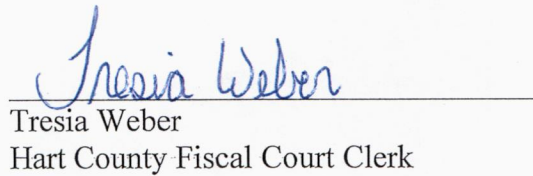 Tresia Weber
Tresia Weber
Hart County Fiscal Court Clerk